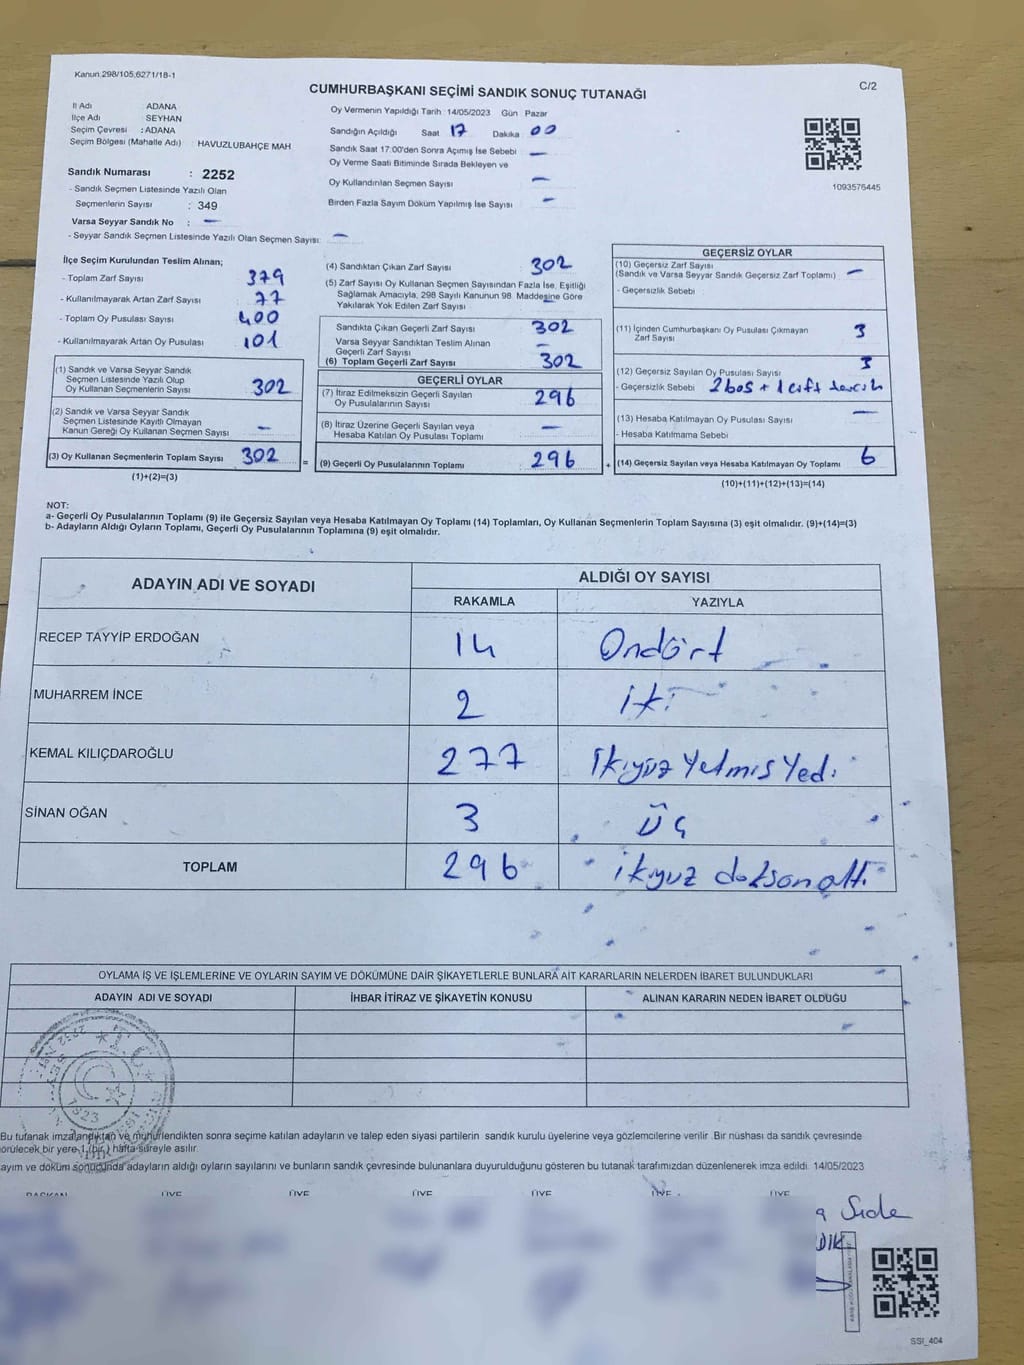 Kanun 298/105,6271/18-1
C/2
CUMHURBAŞKANI SEÇİMİ SANDIK SONUÇ TUTANAĞI
İl Adı ADANA
İlçe Adı SEYHAN
Seçim Çevresi : ADANA
Seçim Bölgesi (Mahalle Adı) : HAVUZLUBAHÇE MAH
Sandık Numarası : 2252
- Sandık Seçmen Listesinde Yazılı Olan
Seçmenlerin Sayısı : 349
Varsa Seyyar Sandık No : —
- Seyyar Sandık Seçmen Listesinde Yazılı Olan Seçmen Sayısı: —
Oy Vermenin Yapıldığı Tarih 14/05/2023 Gün Pazar
Sandığın Açıldığı Saat 17 Dakika 00
Sandık Saat 17:00'den Sonra Açımış İse Sebebi —
Oy Verme Saati Bitiminde Sırada Bekleyen ve
Oy Kullandırılan Seçmen Sayısı —
Birden Fazla Sayım Döküm Yapılmış İse Sayısı —
1093576445
İlçe Seçim Kurulundan Teslim Alınan;
- Toplam Zarf Sayısı 379
- Kullanılmayarak Artan Zarf Sayısı 77
- Toplam Oy Pusulası Sayısı 400
- Kullanılmayarak Artan Oy Pusulası 101
(1) Sandık ve Varsa Seyyar Sandık
Seçmen Listesinde Yazılı Olup
Oy Kullanan Seçmenlerin Sayısı 302
(2) Sandık ve Varsa Seyyar Sandık
Seçmen Listesinde Kayıtlı Olmayan
Kanun Gereği Oy Kullanan Seçmen Sayısı —
(3) Oy Kullanan Seçmenlerin Toplam Sayısı 302 =
(1)+(2)=(3)
(4) Sandıktan Çıkan Zarf Sayısı 302
(5) Zarf Sayısı Oy Kullanan Seçmen Sayısından Fazla İse, Eşitliği
Sağlamak Amacıyla, 298 Sayılı Kanunun 98. Maddesine Göre
Yakılarak Yok Edilen Zarf Sayısı —
Sandıkta Çıkan Geçerli Zarf Sayısı 302
Varsa Seyyar Sandıktan Teslim Alınan
Geçerli Zarf Sayısı —
(6) Toplam Geçerli Zarf Sayısı 302
GEÇERLİ OYLAR
(7) İtiraz Edilmeksizin Geçerli Sayılan
Oy Pusulalarının Sayısı 296
(8) İtiraz Üzerine Geçerli Sayılan veya
Hesaba Katılan Oy Pusulası Toplamı —
(9) Geçerli Oy Pusulalarının Toplamı 296 +
GEÇERSİZ OYLAR
(10) Geçersiz Zarf Sayısı
(Sandık ve Varsa Seyyar Sandık Geçersiz Zarf Toplamı) —
- Geçersizlik Sebebi
(11) İçinden Cumhurbaşkanı Oy Pusulası Çıkmayan 3
Zarf Sayısı
(12) Geçersiz Sayılan Oy Pusulası Sayısı 3
- Geçersizlik Sebebi 2 boş + 1 çift tercih
(13) Hesaba Katılmayan Oy Pusulası Sayısı —
- Hesaba Katılmama Sebebi
(14) Geçersiz Sayılan veya Hesaba Katılmayan Oy Toplamı 6
(10)+(11)+(12)+(13)=(14)
NOT:
a- Geçerli Oy Pusulalarının Toplamı (9) ile Geçersiz Sayılan veya Hesaba Katılmayan Oy Toplamı (14) Toplamları, Oy Kullanan Seçmenlerin Toplam Sayısına (3) eşit olmalıdır. (9)+(14)=(3)
b- Adayların Aldığı Oyların Toplamı, Geçerli Oy Pusulalarının Toplamına (9) eşit olmalıdır.
ADAYIN ADI VE SOYADI ALDIĞI OY SAYISI
RAKAMLA YAZIYLA
RECEP TAYYİP ERDOĞAN 14 Ondört
MUHARREM İNCE 2 iki
KEMAL KILIÇDAROĞLU 277 İkiyüz Yetmis Yedi
SİNAN OĞAN 3 üç
TOPLAM 296 ikiyuz doksan altı
OYLAMA İŞ VE İŞLEMLERİNE VE OYLARIN SAYIM VE DÖKÜMÜNE DAİR ŞİKAYETLERLE BUNLARA AİT KARARLARIN NELERDEN İBARET BULUNDUKLARI
ADAYIN ADI VE SOYADI İHBAR İTİRAZ VE ŞİKAYETİN KONUSU ALINAN KARARIN NEDEN İBARET OLDUĞU
T.C.
1923
Bu tutanak imzalandıktan ve mühürlendikten sonra seçime katılan adayların ve talep eden siyasi partilerin sandık kurulu üyelerine veya gözlemcilerine verilir. Bir nüshası da sandık çevresinde
örülecek bir yere 1 (bir) hafta süreyle asılır.
ayım ve döküm sonucunda adayların aldığı oyların sayılarını ve bunların sandık çevresinde bulunanlara duyurulduğunu gösteren bu tutanak tarafımızdan düzenlenerek imza edildi. 14/05/2023
BAŞKAN ÜYE ÜYE ÜYE ÜYE ÜYE ÜYE
SSI_404